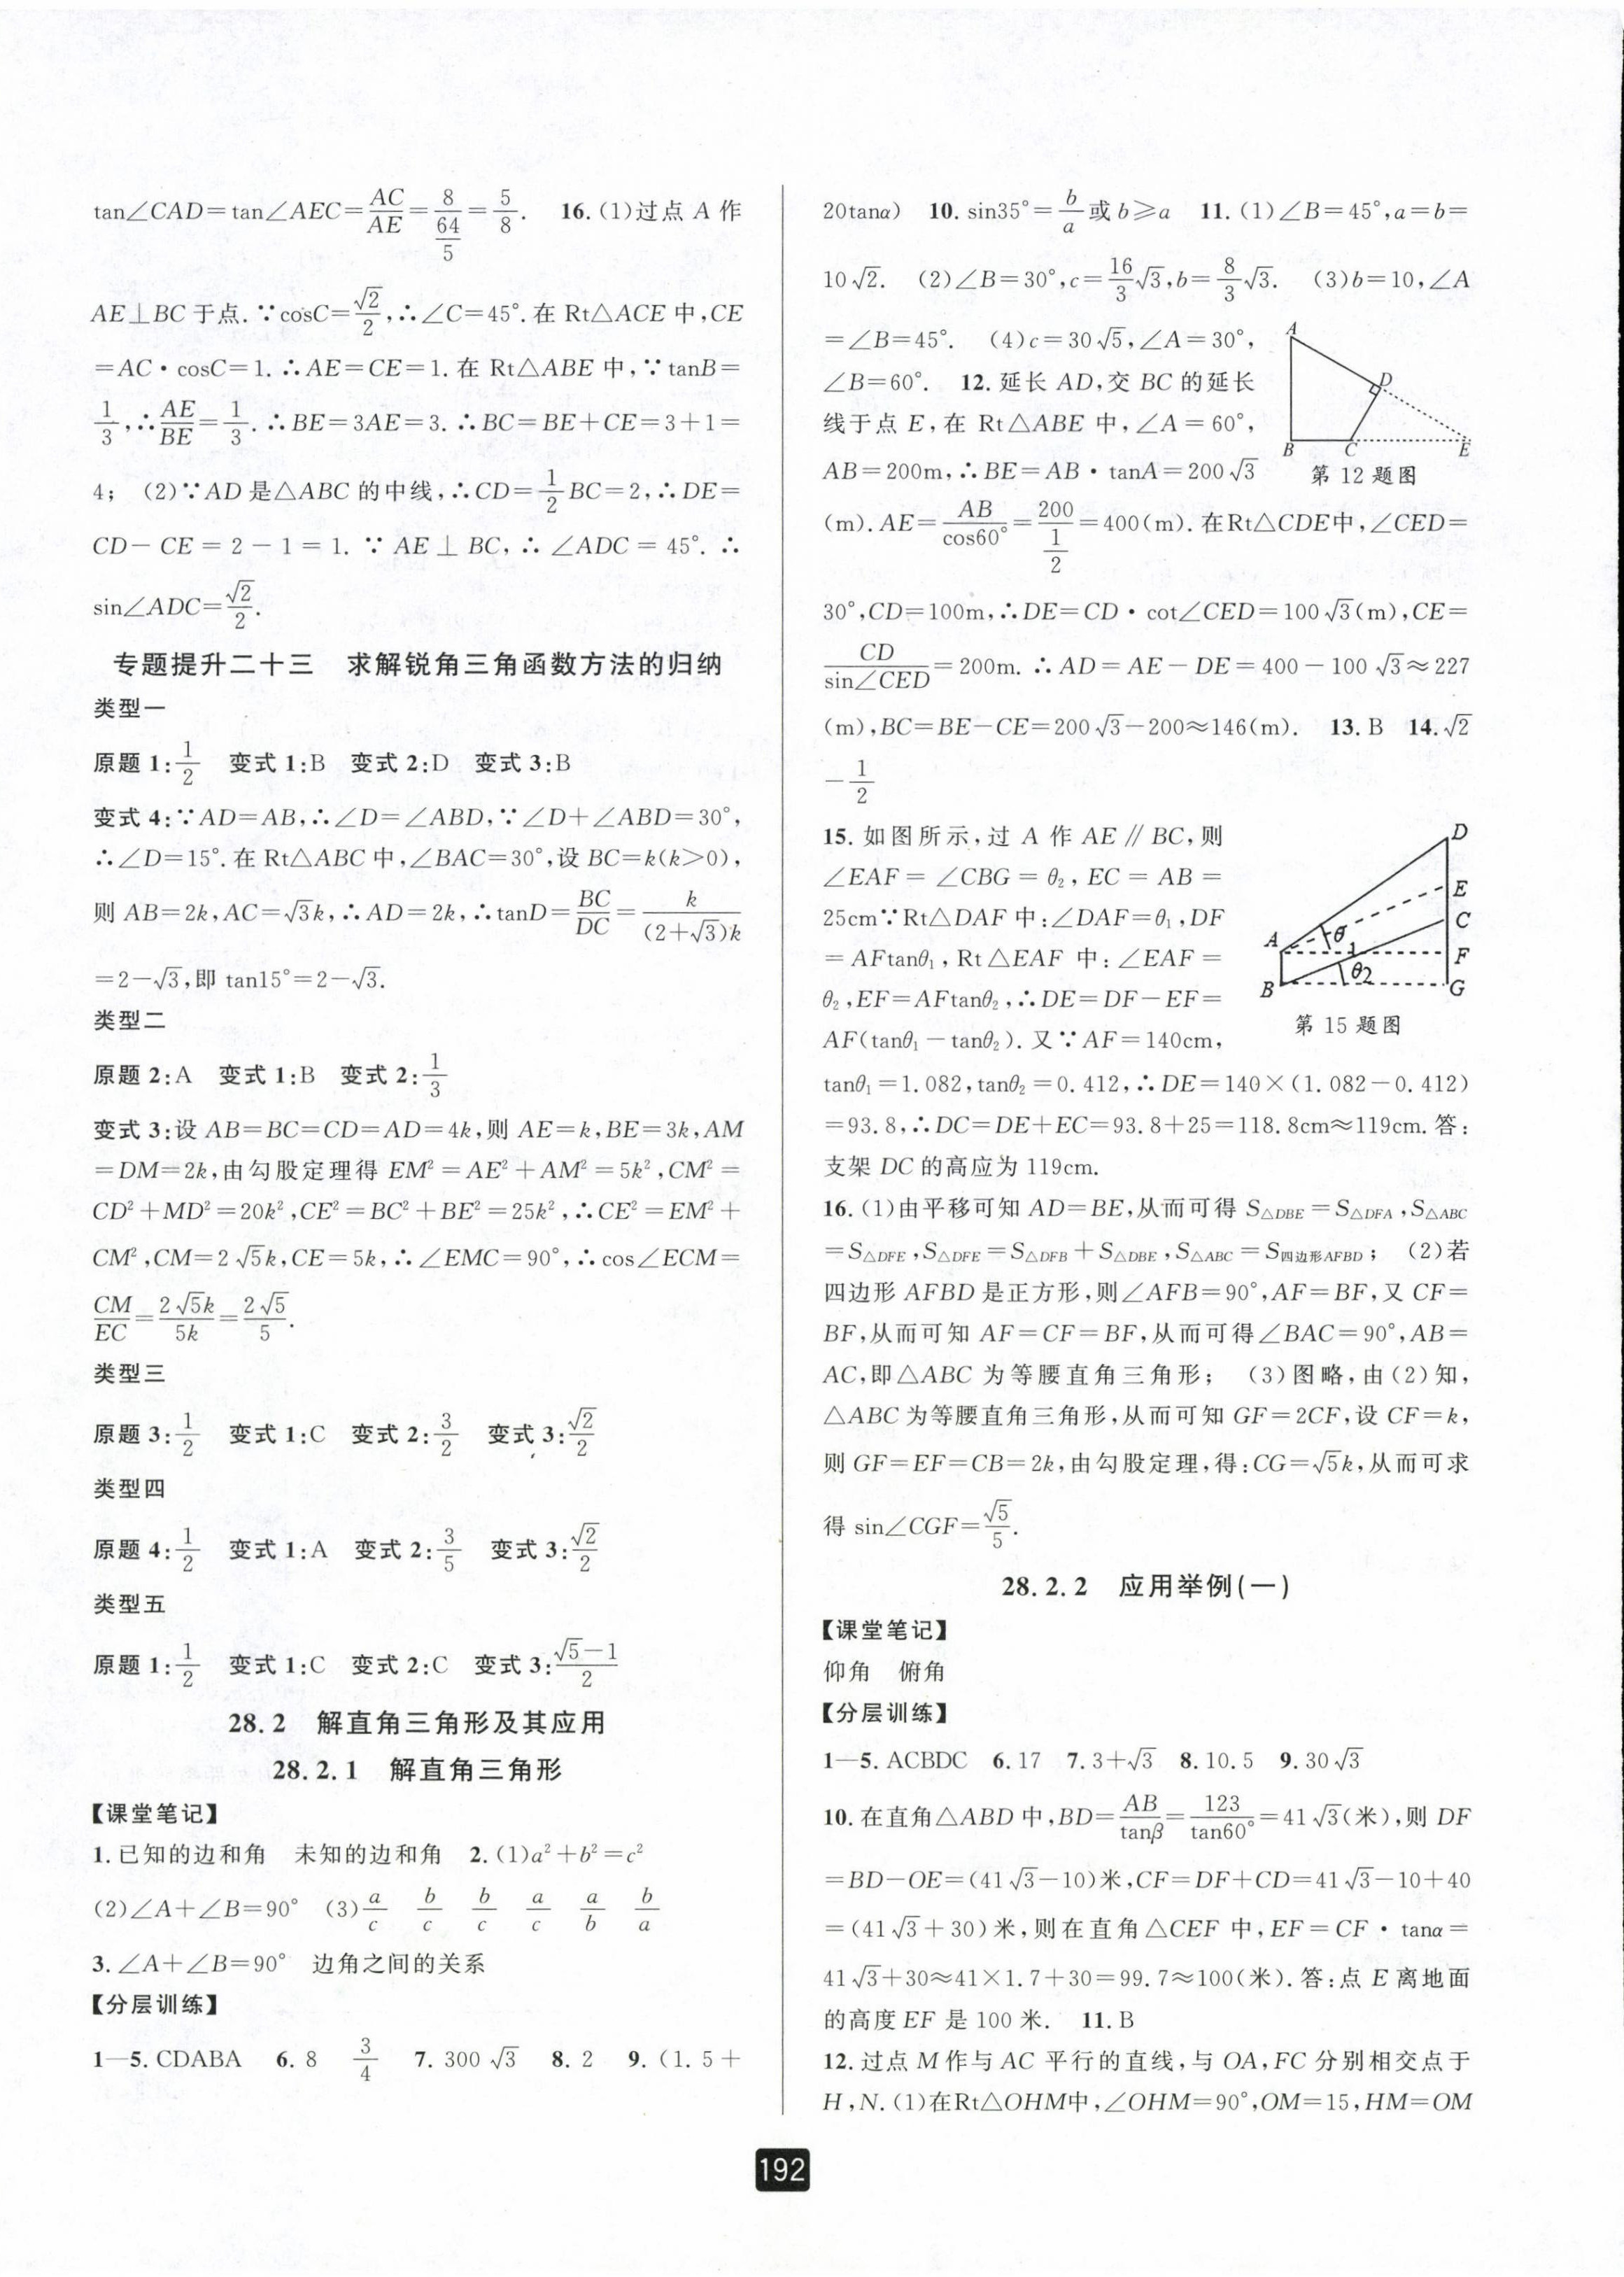 tan∠CAD=tan∠AEC=AC/AE=8/(64/5)=5/8. 16.(1)过点 A 作
AE⊥BC 于点.∵cosC=√2/2,∴∠C=45°.在 Rt△ACE 中,CE
=AC·cosC=1.∴AE=CE=1.在 Rt△ABE 中,∵tanB=
1/3,∴AE/BE=1/3.∴BE=3AE=3.∴BC=BE+CE=3+1=
4; (2)∵AD 是△ABC 的中线,∴CD=1/2BC=2,∴DE=
CD-CE=2-1=1.∵AE⊥BC,∴∠ADC=45°.∴
sin∠ADC=√2/2.
专题提升二十三 求解锐角三角函数方法的归纳
类型一
原题1:1/2 变式1:B 变式2:D 变式3:B
变式4:∵AD=AB,∴∠D=∠ABD,∵∠D+∠ABD=30°,
∴∠D=15°.在 Rt△ABC 中,∠BAC=30°,设 BC=k(k>0),
则 AB=2k,AC=√3k,∴AD=2k,∴tanD=BC/DC=k/((2+√3)k)
=2-√3,即 tan15°=2-√3.
类型二
原题2:A 变式1:B 变式2:1/3
变式3:设 AB=BC=CD=AD=4k,则 AE=k,BE=3k,AM
=DM=2k,由勾股定理得 EM²=AE²+AM²=5k²,CM²=
CD²+MD²=20k²,CE²=BC²+BE²=25k²,∴CE²=EM²+
CM²,CM=2√5k,CE=5k,∴∠EMC=90°,∴cos∠ECM=
CM/EC=2√5k/5k=2√5/5.
类型三
原题3:1/2 变式1:C 变式2:3/2 变式3:√2/2
类型四
原题4:1/2 变式1:A 变式2:3/5 变式3:√2/2
类型五
原题1:1/2 变式1:C 变式2:C 变式3:(√5-1)/2
28.2 解直角三角形及其应用
28.2.1 解直角三角形
【课堂笔记】
1.已知的边和角 未知的边和角 2.(1)a²+b²=c²
(2)∠A+∠B=90° (3)a/c b/c b/c a/c a/b b/a
3.∠A+∠B=90° 边角之间的关系
【分层训练】
1—5.CDABA 6.8 3/4 7.300√3 8.2 9.(1.5+
20tanα) 10.sin35°=b/a或b≥a 11.(1)∠B=45°,a=b=
10√2. (2)∠B=30°,c=16/3√3,b=8/3√3. (3)b=10,∠A
=∠B=45°. (4)c=30√5,∠A=30°,
∠B=60°. 12.延长 AD,交 BC 的延长
线于点 E,在 Rt△ABE 中,∠A=60°,
AB=200m,∴BE=AB·tanA=200√3
A
D
B
C
E
第12题图
(m).AE=AB/cos60°=200/(1/2)=400(m).在Rt△CDE中,∠CED=
30°,CD=100m,∴DE=CD·cot∠CED=100√3(m),CE=
CD/sin∠CED=200m.∴AD=AE-DE=400-100√3≈227
(m),BC=BE-CE=200√3-200≈146(m). 13.B 14.√2
-1/2
15.如图所示,过 A 作 AE∥BC,则
∠EAF=∠CBG=θ₂,EC=AB=
25cm∵Rt△DAF 中:∠DAF=θ₁,DF
=AFtanθ₁,Rt△EAF 中:∠EAF=
θ₂,EF=AFtanθ₂,∴DE=DF-EF=
AF(tanθ₁-tanθ₂).又∵AF=140cm,
D
E
C
A
θ₁
F
B
θ2
G
第15题图
tanθ₁=1.082,tanθ₂=0.412,∴DE=140×(1.082-0.412)
=93.8,∴DC=DE+EC=93.8+25=118.8cm≈119cm.答:
支架 DC 的高应为 119cm.
16.(1)由平移可知 AD=BE,从而可得 S△DBE=S△DFA,S△ABC
=S△DFE,S△DFE=S△DFB+S△DBE,S△ABC=S四边形AFBD; (2)若
四边形 AFBD 是正方形,则∠AFB=90°,AF=BF,又 CF=
BF,从而可知 AF=CF=BF,从而可得∠BAC=90°,AB=
AC,即△ABC 为等腰直角三角形; (3)图略,由(2)知,
△ABC 为等腰直角三角形,从而可知 GF=2CF,设 CF=k,
则 GF=EF=CB=2k,由勾股定理,得:CG=√5k,从而可求
得 sin∠CGF=√5/5.
28.2.2 应用举例(一)
【课堂笔记】
仰角 俯角
【分层训练】
1—5.ACBDC 6.17 7.3+√3 8.10.5 9.30√3
10.在直角△ABD 中,BD=AB/tanβ=123/tan60°=41√3(米),则 DF
=BD-OE=(41√3-10)米,CF=DF+CD=41√3-10+40
=(41√3+30)米,则在直角△CEF 中,EF=CF·tanα=
41√3+30≈41×1.7+30=99.7≈100(米).答:点 E 离地面
的高度 EF 是 100 米. 11.B
12.过点 M 作与 AC 平行的直线,与 OA,FC 分别相交点于
H,N.(1)在Rt△OHM中,∠OHM=90°,OM=15,HM=OM
192